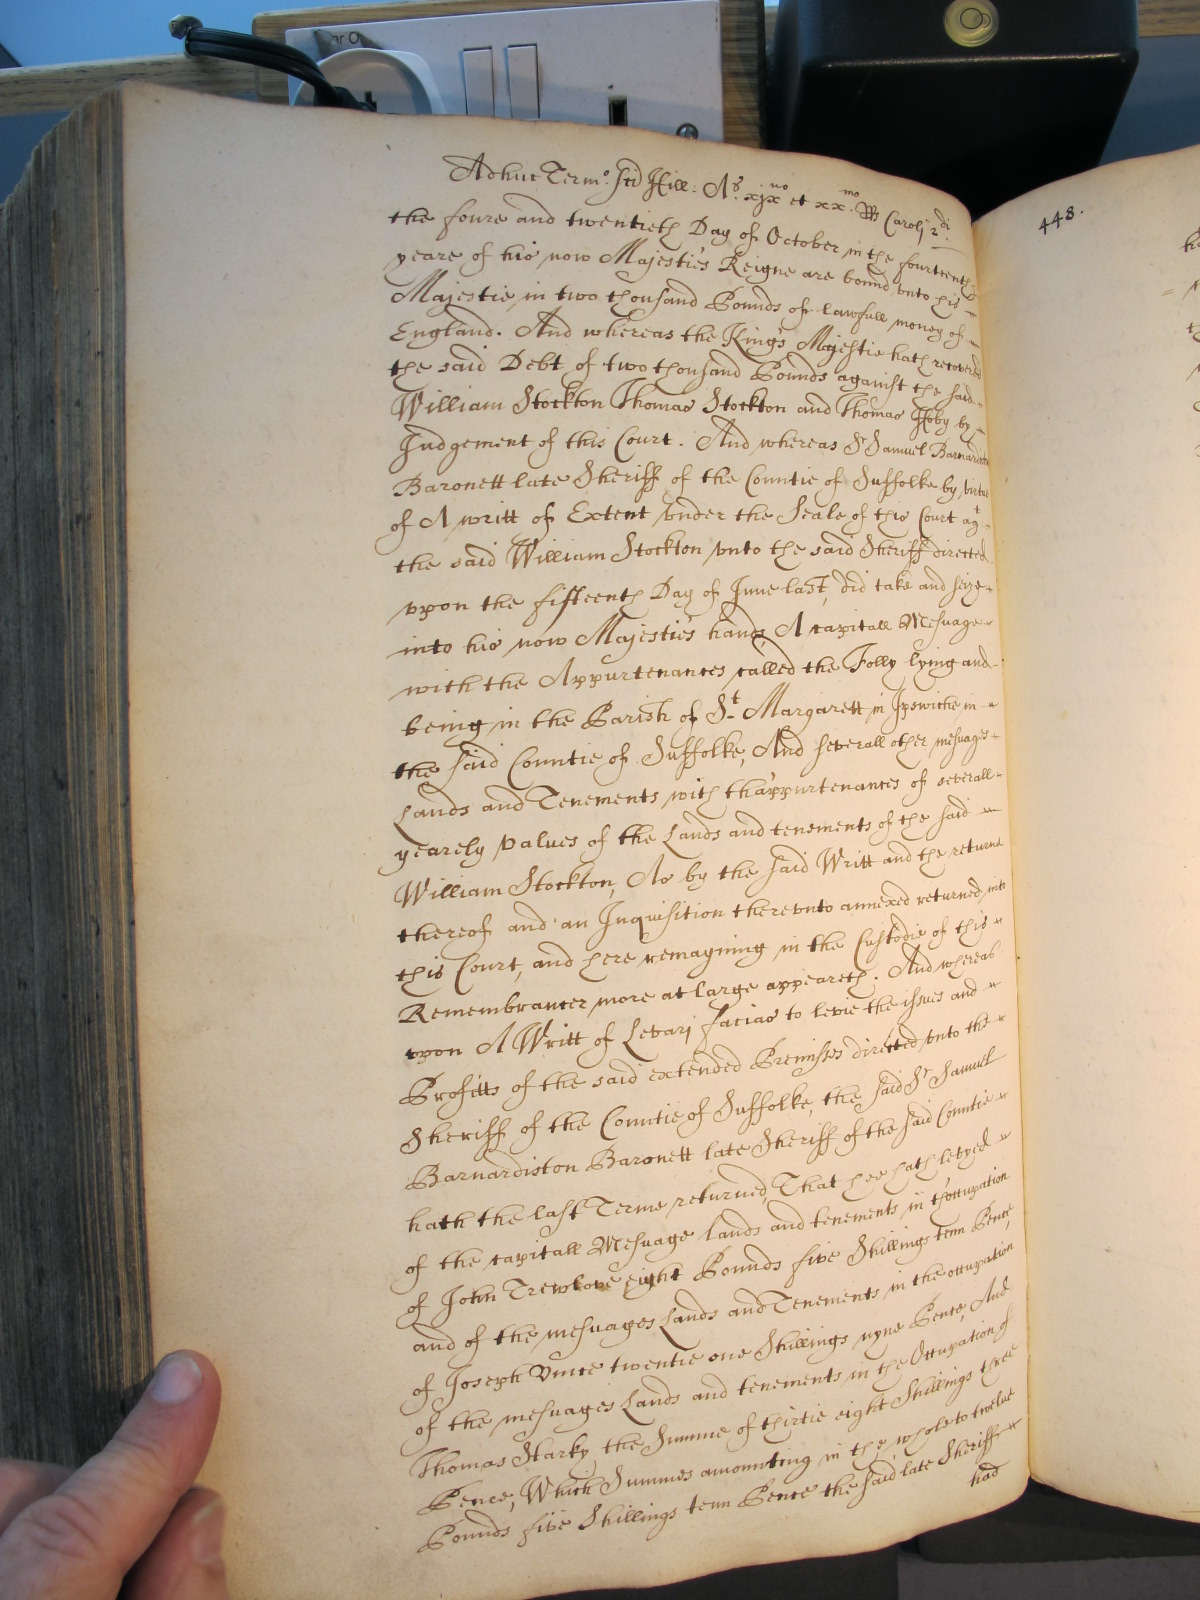 Adhuc Termo Sci Hill: Ao xixno et xxmo Rs Caroli 2di.
the foure and twentieth Day of October in the fourteenth
yeare of his now Majesties Reigne are bound vnto his
Majestie in two thousand Pounds of lawfull money of
England. And whereas the Kings Majestie hath recovered
the said Debt of two thousand Pounds against the said
William Stockton Thomas Stockton and Thomas Hoby by
Judgement of this Court. And whereas Sr Samuel Barnardiston
Baronett late Sheriff of the Countie of Suffolke by virtue
of A writt of Extent vnder the Seale of this Court agt
the said William Stockton vnto the said Sheriff directed
vpon the fifteenth Day of June last, did take and seize
into his now Majesties hands A capitall Mesuage
with the Appurtenances called the Folly lying and
being in the Parish of St Margarett in Ipswiche in
the said Countie of Suffolke, And severall other mesuages
Lands and Tenements with thappurtenances of severall
yearely values of the Lands and tenements of the said
William Stockton, As by the said Writt and the returne
thereof and an Inquisition therevnto annexed returned into
this Court, and here remayning in the Custodie of this
Remembrancer more at large appeareth. And whereas
vpon A Writt of Levarj facias to levie the issues and
Profitts of the said extended Premisses directed vnto the
Sheriff of the Countie of Suffolke, the said Sr Samuel
Barnardiston Baronett late Sheriff of the said Countie
hath the last Terme returned, That hee hath levyed
of the capitall Mesuage lands and tenements in th'occupation
of John Trewlove eight Pounds five Shillings tenn Pence,
and of the mesuages Lands and Tenements in the occupation
of Joseph Vince twentie one Shillings nyne Pence, And
of the mesuages Lands and tenements in the Occupation of
Thomas Starky the Summe of thirtie eight Shillings three
Pence, Which Summes amounting in the whole to twelve
Pounds five Shillings tenn Pence the said late Sheriff
had
448.